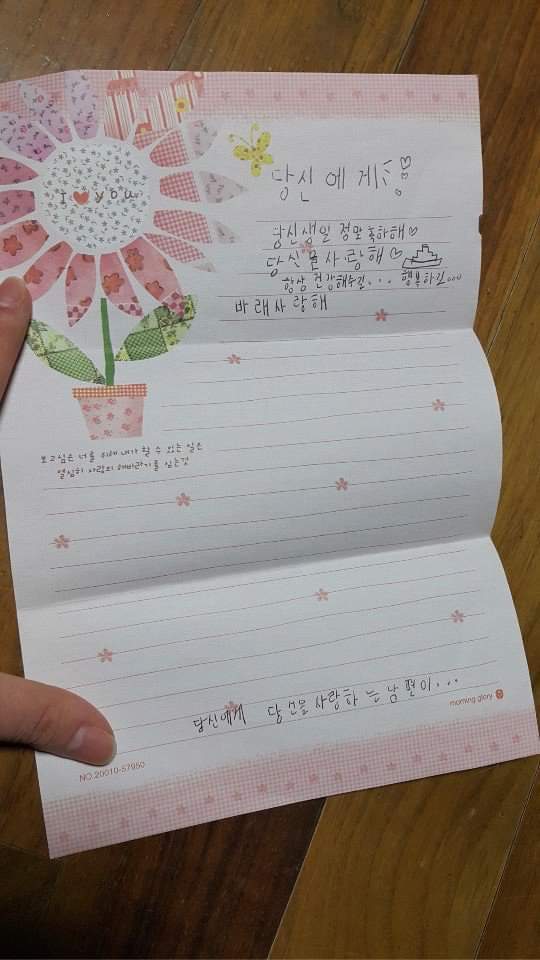 I ♥ you
당신에게
당신생일 정말 축하해♡
당신을 사랑해 ♡
항상 건강해주길... 행복하길...
바래사랑해
보고싶은 너를 위해 내가 할 수 있는 일은
열심히 사랑의 해바라기를 심는것
당신에게 당신을사랑하는남편이...
morning glory
NO.20010-57950